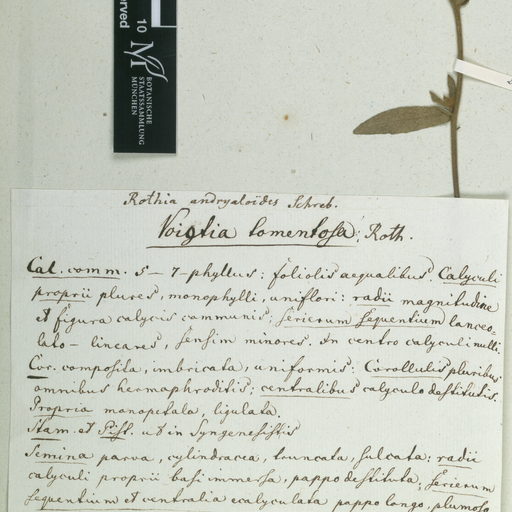 served
10
BOTANISCHE
STAATSSAMMLUNG
MÜNCHEN
Rothia andryaloïdes Schreb.
Voigtia tomentosa; Roth.
Cal. comm. 5-7-phyllus: foliolis aequalibus. Calyculi
proprii plures, monophylli, uniflori: radii magnitudine
et figura calycis communis, serierum sequentium lanceo-
lato-lineares, sensim minores. In centro calyculi nulli.
Cor. composita, imbricata, uniformis: Corollulis pluribus
omnibus hermaphroditis; centralibus calyculo destitutis.
Propria monopetala, ligulata.
Stam. et Pist. ut in Syngenesistis
Semina parva, cylindracea, truncata, sulcata: radii
calyculi proprii basi immersa, pappo destituta; serierum
sequentium et centralia ecalyculata pappo longo, plumoso